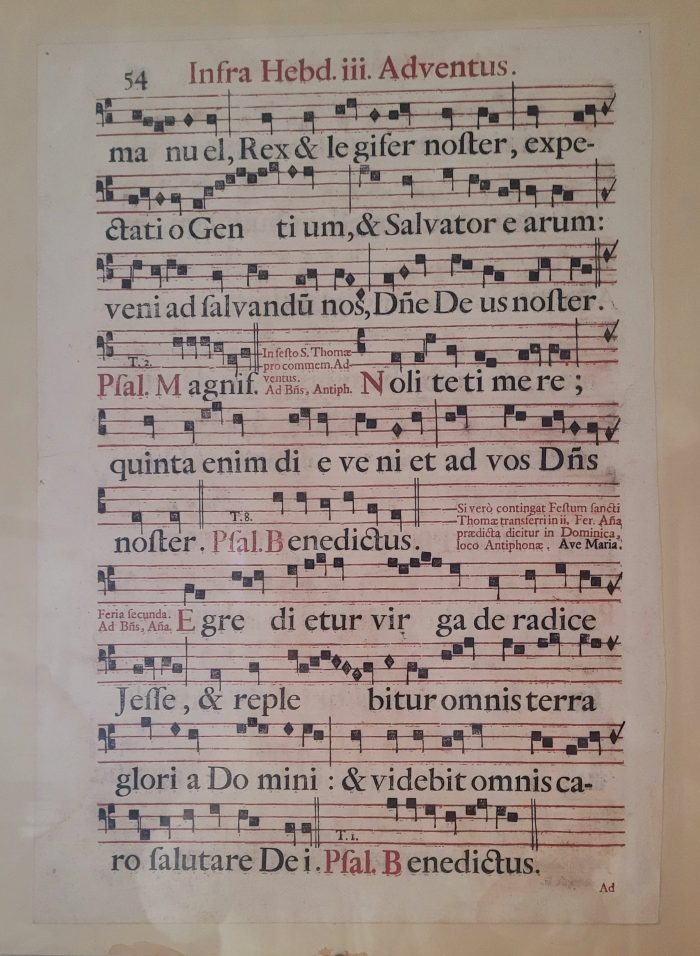 54 Infra Hebd. iii. Adventus.
ma nu el, Rex & le gifer noſter, expe-
ctati o Gen ti um, & Salvator e arum:
veni ad ſalvandū nos, Dñe De us noſter.
T. 2.
Pſal. M agnif.
In feſto S. Thomæ
pro commem. Ad
ventus.
Ad Bñs, Antiph.
N oli te ti me re ;
quinta enim di e ve ni et ad vos Dñs
T. 8.
noſter. Pſal. B enedictus.
Si verò contingat Feſtum ſancti
Thomæ transferri in ii. Fer. Aña
prædicta dicitur in Dominica,
loco Antiphonæ, Ave Maria.
Feria ſecunda.
Ad Bñs, Aña.
E gre di etur vir ga de radice
Jeſſe, & reple bitur omnis terra
glori a Do mini : & videbit omnis ca-
T. 1.
ro ſalutare De i. Pſal. B enedictus.
Ad